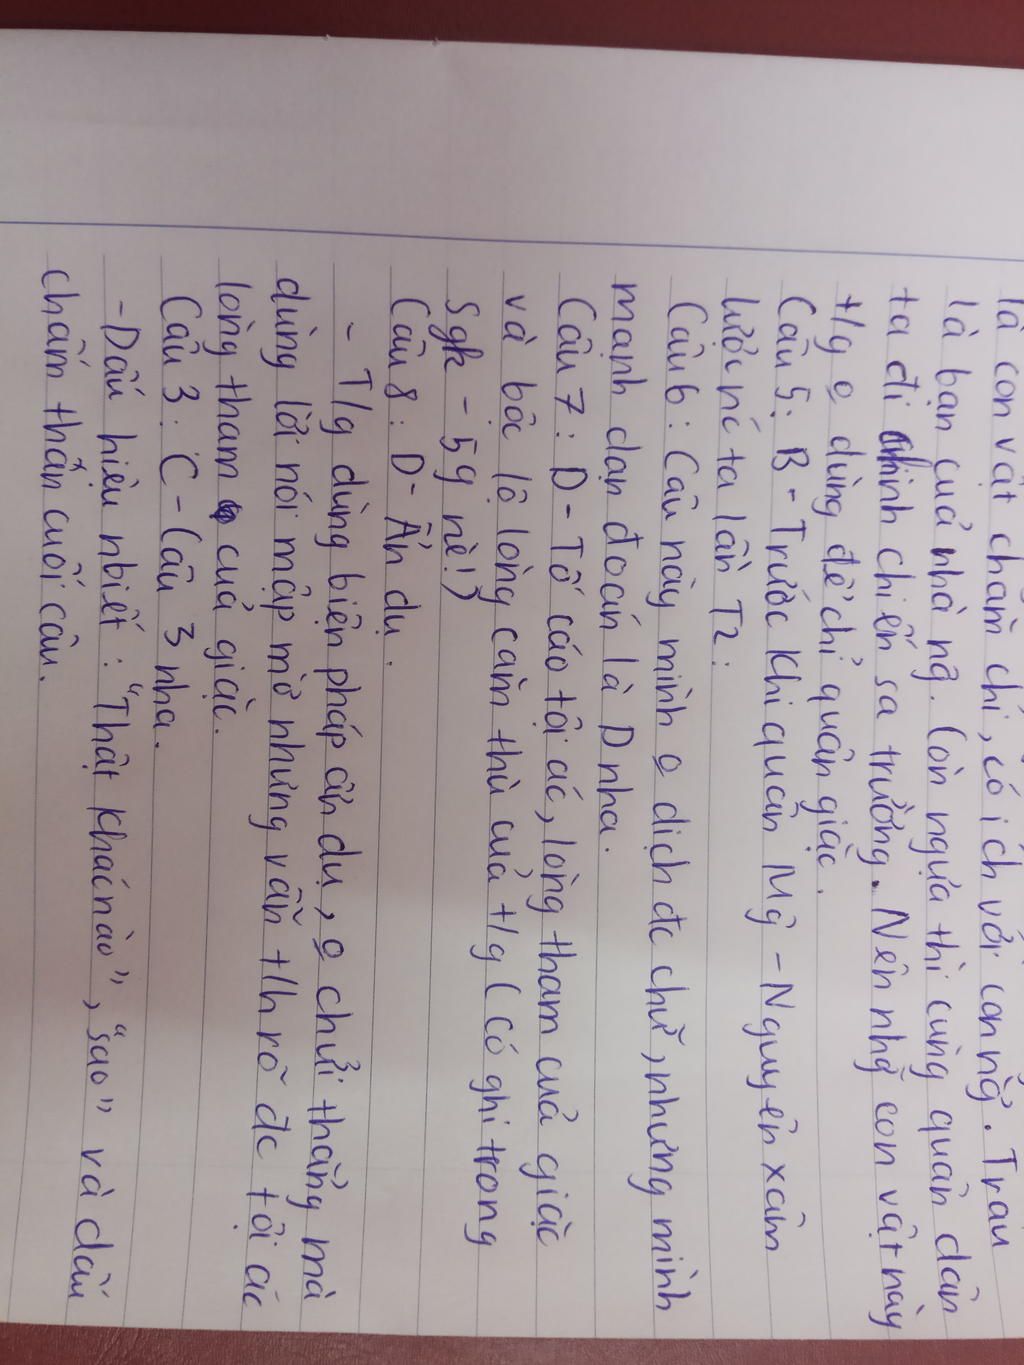 là con vật chăm chỉ, có ích với con ng̉. Trâu
là bạn của nhà nông. Còn ngựa thì cùng quân dân
ta đi chinh chiến sa trường. Nên nhg̃ con vật này
t/g o dùng để chỉ quân giặc.
Câu 5: B - Trước khi quân Mông - Nguyên xâm
lược nc ta lần T2.
Câu 6: Câu này mình o dịch đc chữ, nhưng mình
mạnh dạn đoán là D nha.
Câu 7: D - Tố cáo tội ác, lòng tham của giặc
và bộc lộ lòng căm thù của t/g (có ghi trong
Sgk - 59 nè!)
Câu 8: D - Ẩn dụ.
- T/g dùng biện pháp ẩn dụ, o chửi thẳng mà
dùng lời nói mập mờ nhưng vẫn t/h rõ đc tội ác
lòng tham của giặc.
Câu 3: C - Câu 3 nha.
- Dấu hiệu nbiết: "Thật khác nào", "sao" và dấu
chấm thán cuối câu.